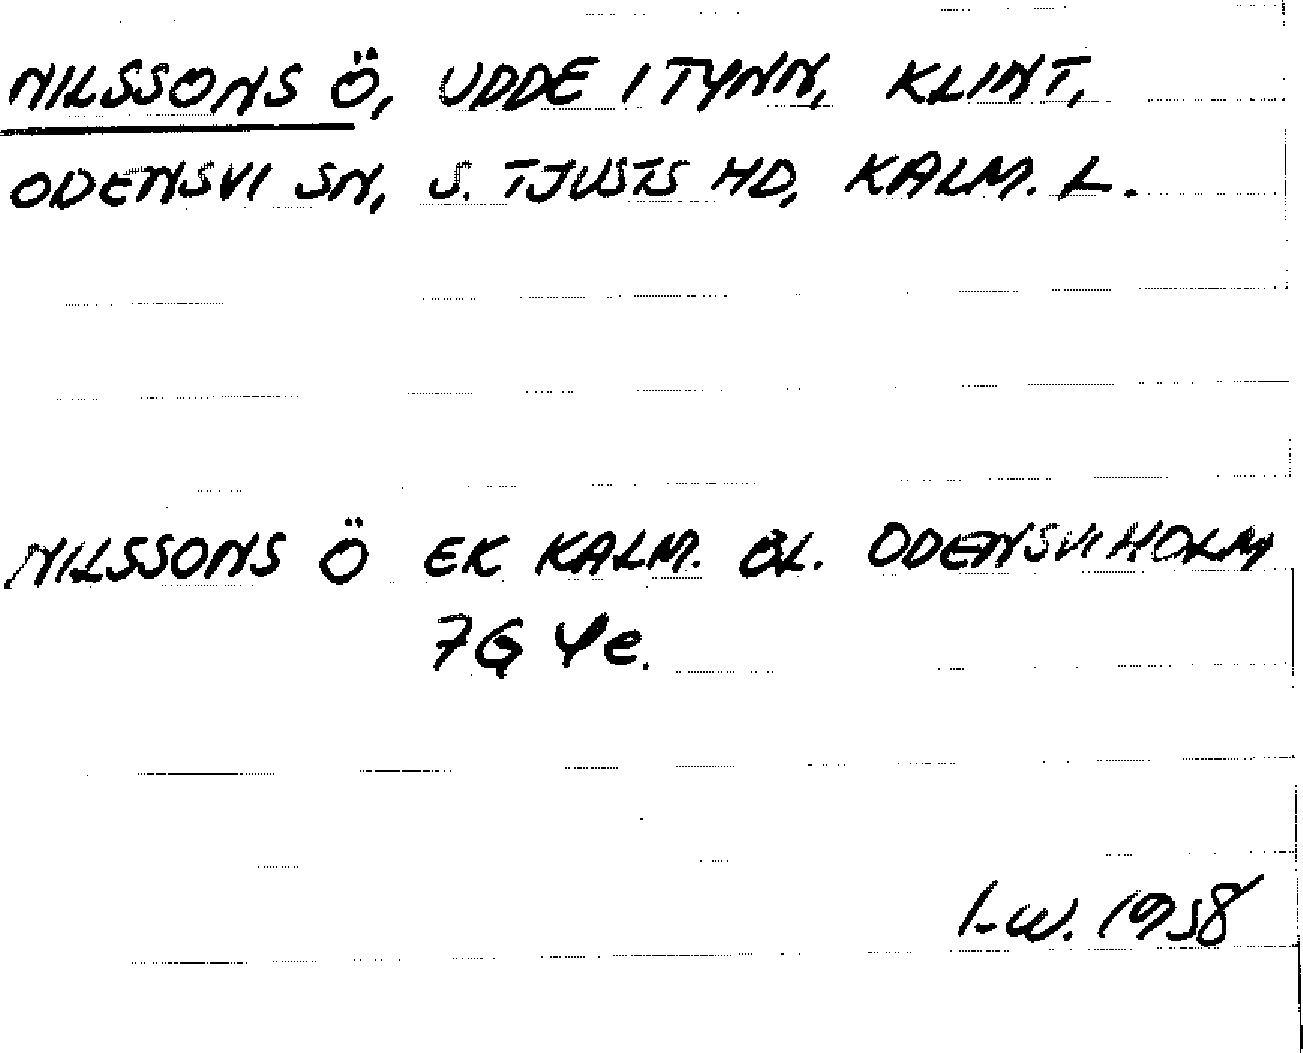 NILSSONS Ö, UDDE I TYNN, KLINT,
ODENSVI SN, S. TJUSTS HD, KALM. L.
NILSSONS Ö EK KALM. BL. ODENSVIHOLM
7G 4e.
I-W. 1958